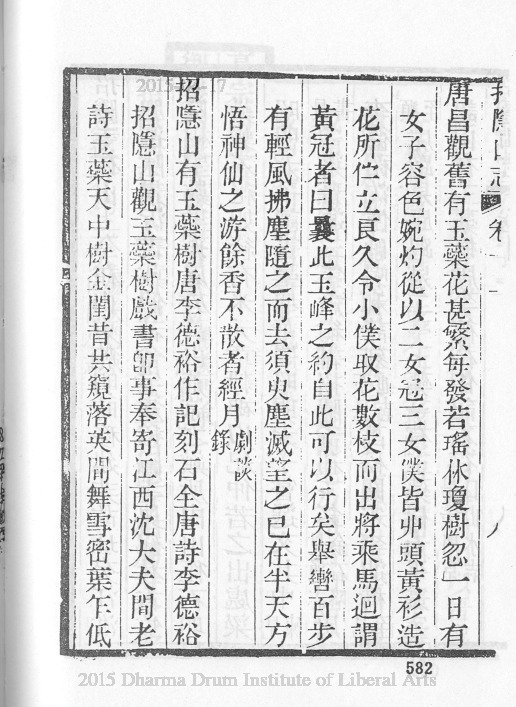 招隱山志 卷十一 八
唐昌觀舊有玉蘂花甚繁每發若瑤林瓊樹忽一日有
女子容色婉灼從以二女冠三女僕皆丱頭黃衫造
花所佇立良久令小僕取花數枝而出將乘馬迴謂
黃冠者曰曩此玉峰之約自此可以行矣舉轡百步
有輕風拂塵隨之而去須臾塵滅望之已在半天方
悟神仙之游餘香不散者經月劇談錄
招隱山有玉蘂樹唐李德裕作記刻石全唐詩李德裕
招隱山觀玉蘂樹戲書卽事奉寄江西沈大夫閣老
詩玉蘂天中樹金閨昔共窺落英閒舞雪密葉乍低
582
2015-04-17
2015 Dharma Drum Institute of Liberal Arts